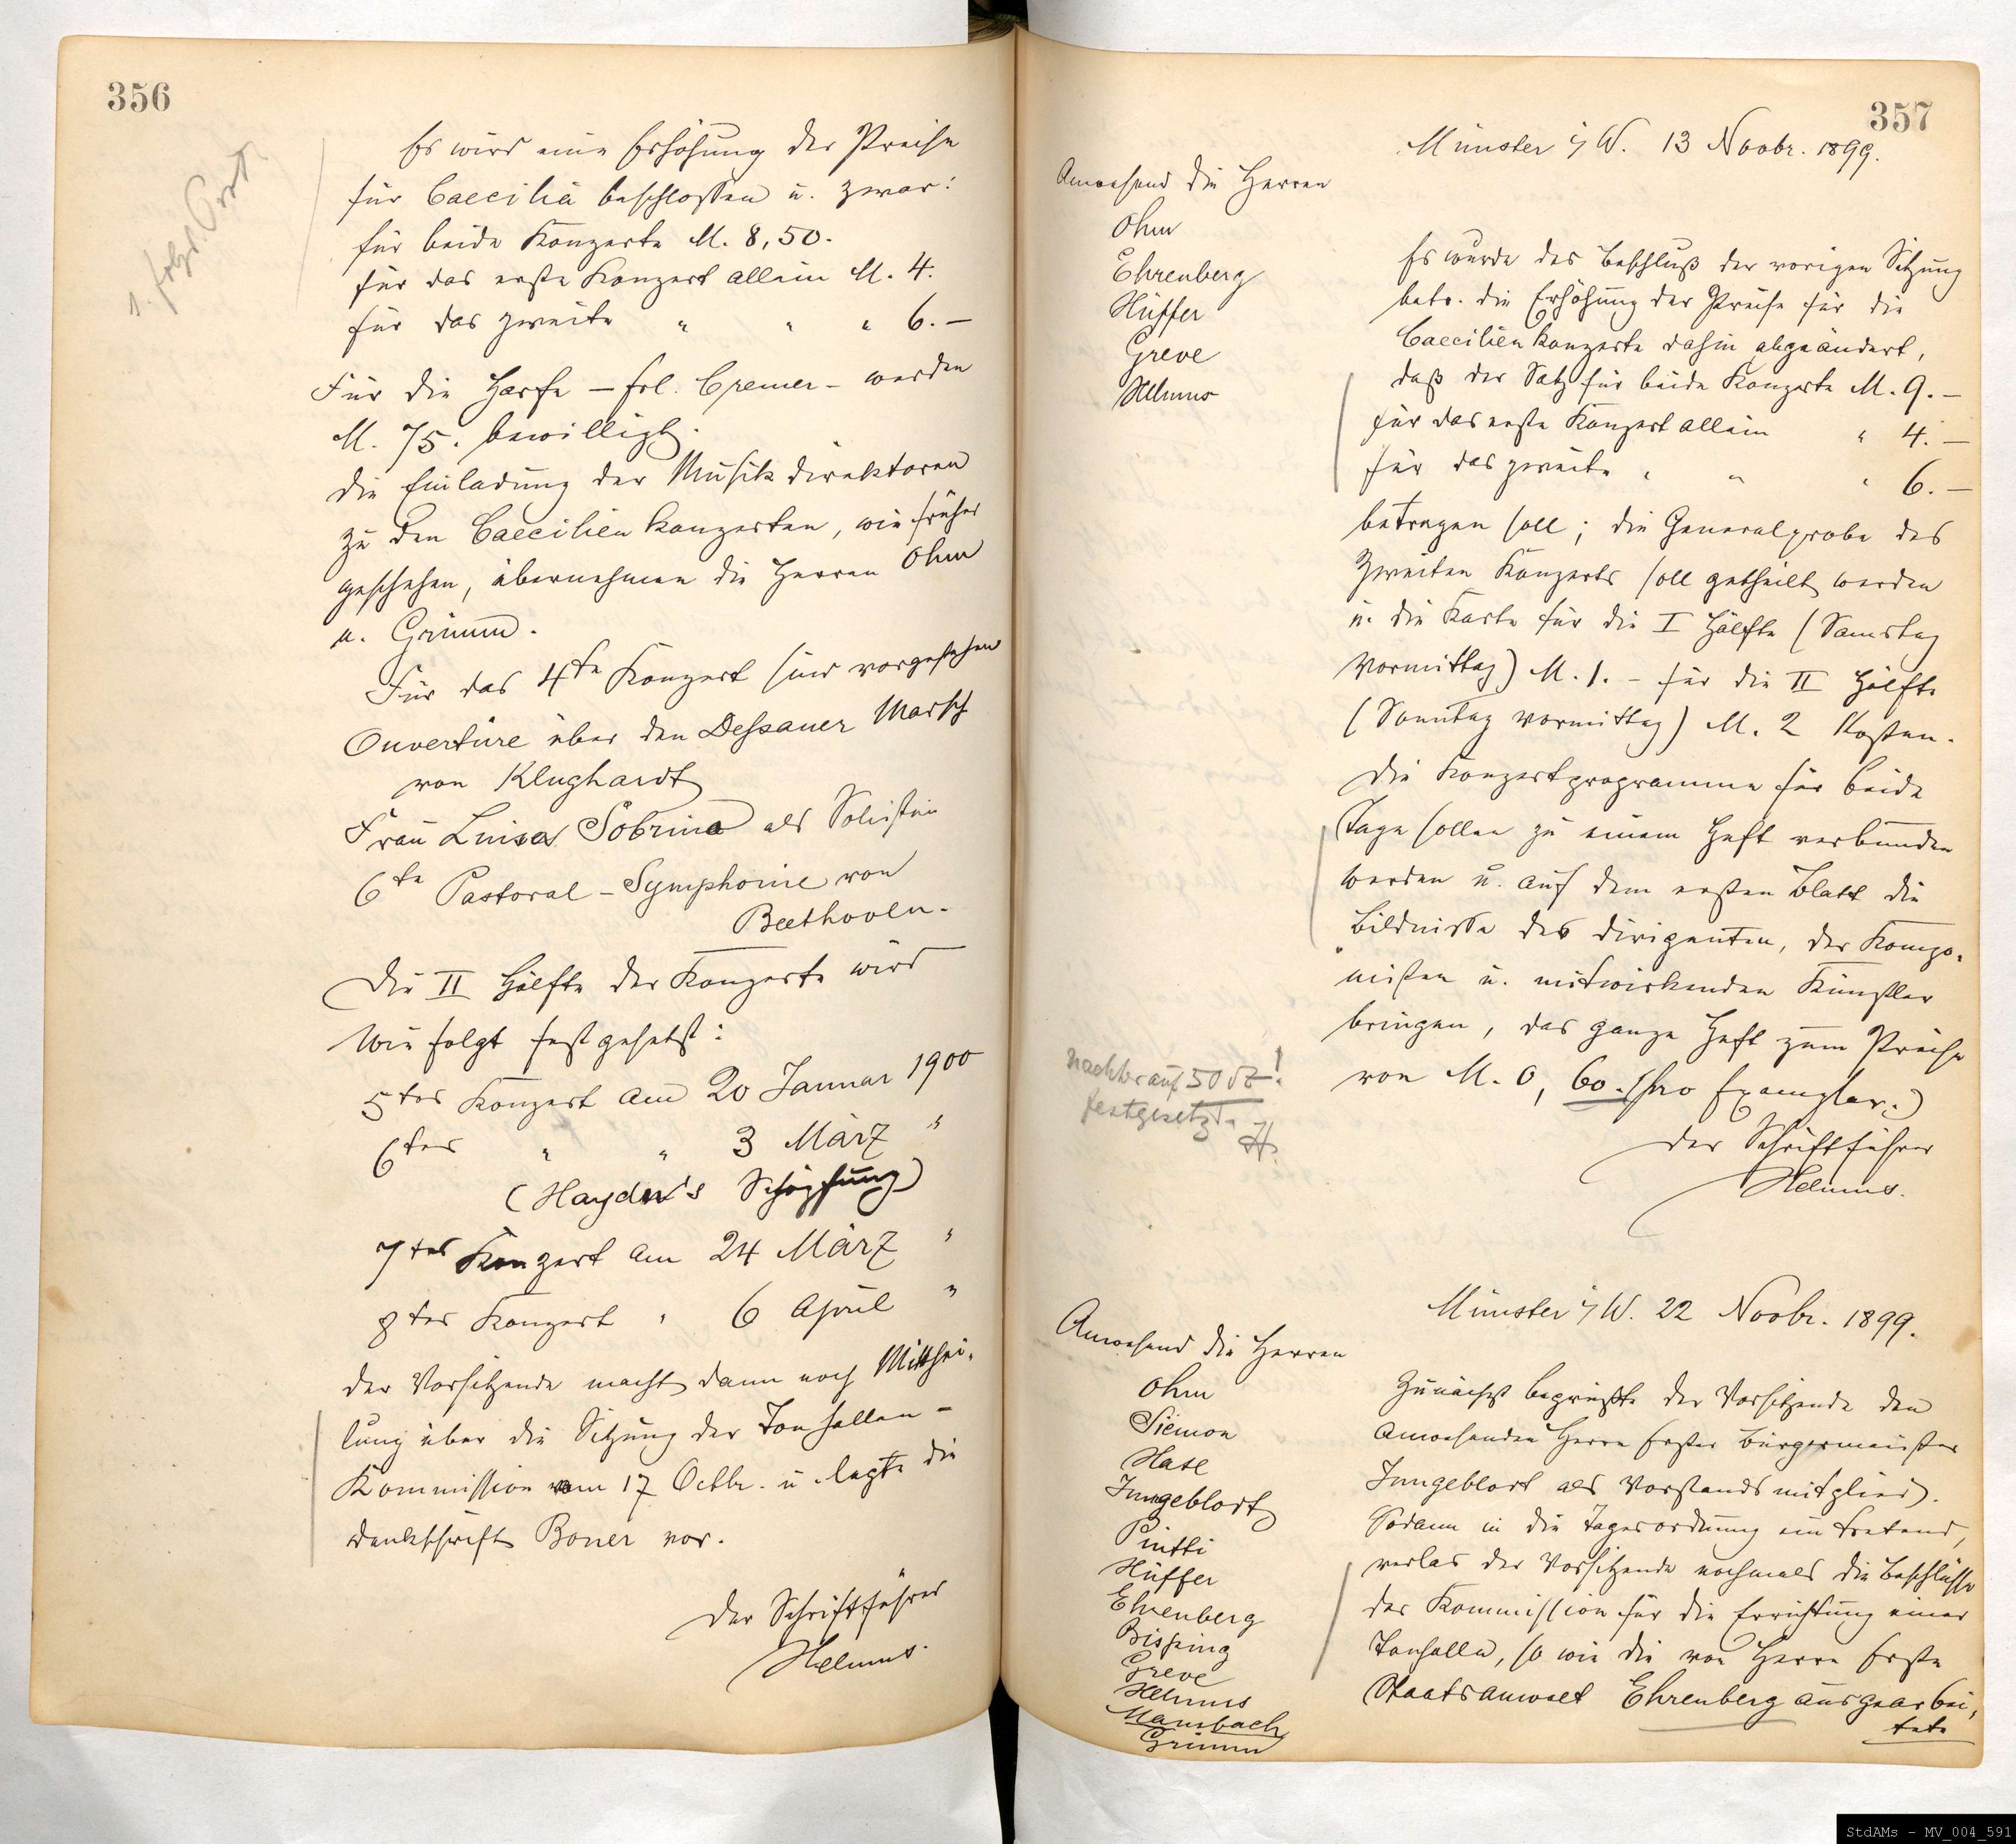 356
1. folg. Prot.
Es wird eine Erhöhung der Preise
für Caecilia beschlossen u. zwar:
für beide Konzerte M. 8,50.
für das erste Konzert allein M. 4.
für das zweite " " " 6.—
Für die Harfe – Frl. Cremer – werden
M. 75. bewilligt.
Die Einladung der Musikdirektoren
zu den Caecilienkonzerten, wie früher
geschehen, übernehmen die Herren Ohm
u. Grimm.
Für das 4te Konzert sind vorgesehen
Ouvertüre über den Dessauer Marsch
von Klughardt
Frau Luisa Sobrino als Solistin
6te Pastoral-Symphonie von
Beethoven.
Die II Hälfte der Konzerte wird
wie folgt festgesetzt:
5tes Konzert am 20 Januar 1900
6tes " " 3 März "
(Haydn's Schöpfung)
7tes Konzert am 24 März "
8tes Konzert " 6 April "
Der Vorsitzende macht dann noch Mitthei-
lung über die Sitzung der Tonhallen-
Kommission vom 17 Octbr. u legte die
Denkschrift Boner vor.
Der Schriftführer
Helmus.
357
Münster i/W. 13 Novbr. 1899.
Anwesend die Herren
Ohm
Ehrenberg
Hüffer
Greve
Helmus
Es wurde der Beschluß der vorigen Sitzung
betr. die Erhöhung der Preise für die
Caecilienkonzerte dahin abgeändert,
daß der Satz für beide Konzerte M. 9.—
für das erste Konzert allein " 4.—
für das zweite " " " 6.—
betragen soll; die Generalprobe des
zweiten Konzerts soll getheilt werden
u. die Karte für die I Hälfte (Samstag
Vormittag) M. 1. – für die II Hälfte
(Sonntag Vormittag) M. 2 kosten.
Die Konzertprogramme für beide
Tage sollen zu einem Heft verbunden
werden u. auf dem ersten Blatt die
Bildnisse des Dirigenten, der Kompo-
nisten u. mitwirkenden Künstler
bringen, das ganze Heft zum Preise
von M. 0,60. (pro Exemplar.)
nachher auf 50 δ
festgesetzt. H.
Der Schriftführer
Helmus.
Münster i/W. 22 Novbr. 1899.
Anwesend die Herren
Ohm
Siemon
Hase
Jungeblodt
Hüffer
Ehrenberg
Bisping
Greve
Helmus
Mansbach
Grimm
Zunächst begrüßte der Vorsitzende den
anwesenden Herrn Erster Bürgermeister
Jungeblodt als Vorstandsmitglied.
Sodann in die Tagesordnung eintretend,
verlas der Vorsitzende nochmals die Beschlüsse
der Kommission für die Errichtung einer
Tonhalle, so wie die von Herrn Erste
Staatsanwalt Ehrenberg ausgearbei-
tete
StdAMs – MV_004_591